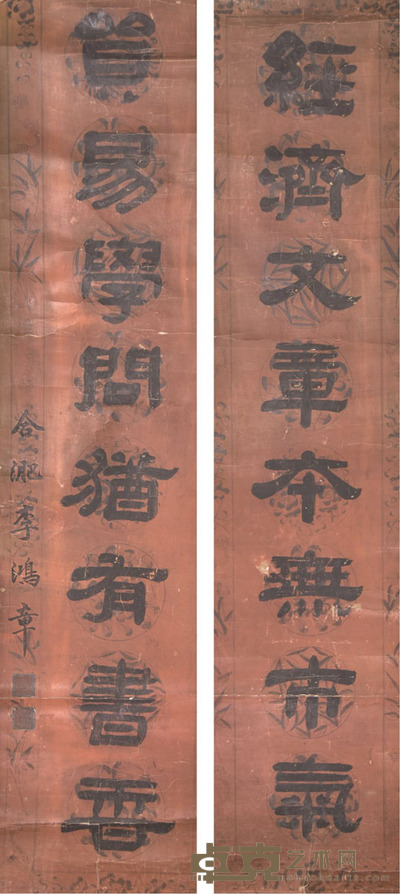 經濟文章本無市氣
貿易學問猶有書香
合淝李鴻章
卓克艺术网